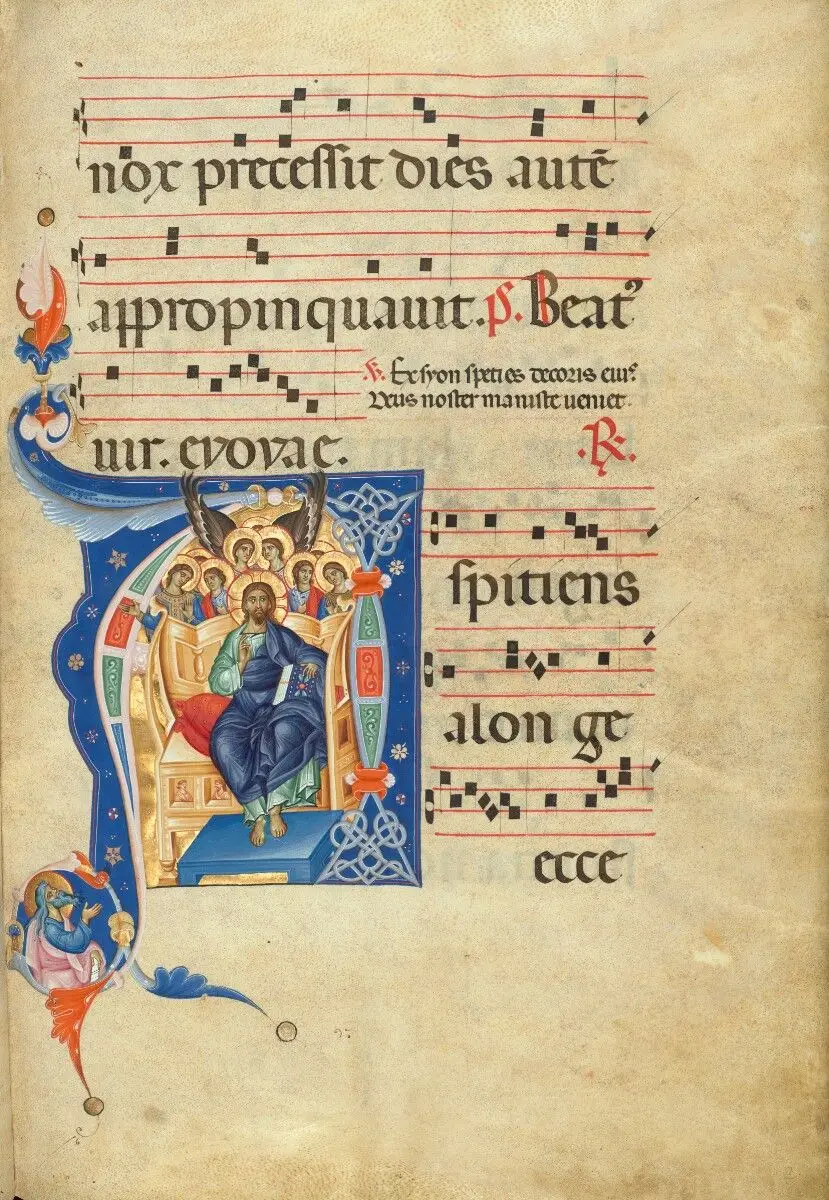 nox precessit dies autē
appropinquauit. P. Beatꝰ
uir. evovae.
℣. Ex syon speties decoris eiusꝰ
Deus noster maniste ueniet.
.℟.
Aspitiens
alon ge
ecce